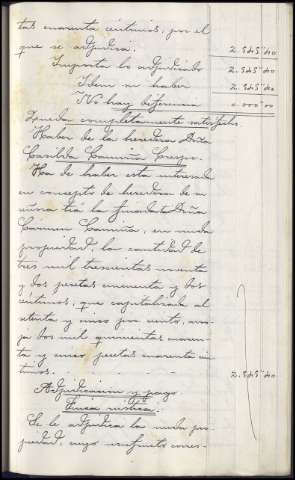 tas cuarenta céntimos, por el
que se adjudica. 2.545'40
Importa lo adjudicado 2.545'40
Idem su haber 2.545'40
No hay diferencia 0.000'00
Queda completamente satisfecha.
Haber de la heredera Doña
Casilda Camiña Crespo.
Ha de haber esta interesada
en concepto de heredera de
su tía la finada Doña
Carmen Camiña, en nuda
propiedad, la cantidad de
tres mil trescientas noventa
y dos pesetas cincuenta y dos
céntimos, que capitalizada al
setenta y cinco por ciento,
dos mil quinientas cuaren-
ta y cinco pesetas cuarenta cén-
timos. 2.545'40
Adjudicación y pago
Finca rústica.
Se le adjudica la nuda pro-
piedad, cuyo usufructo corres-